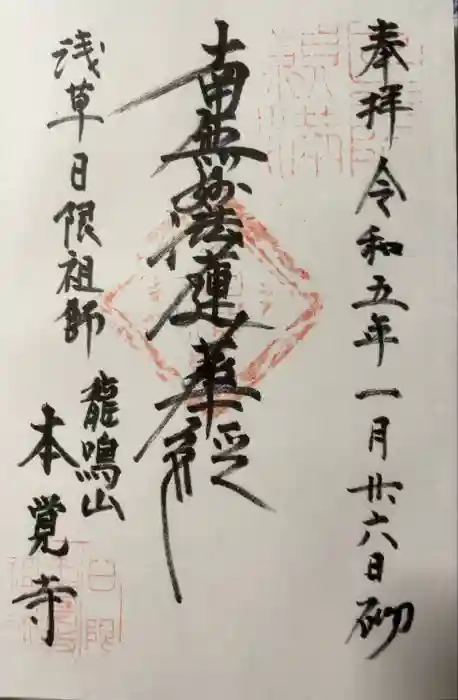 奉拝 令和五年一月廿六日 砌
南無妙法蓮華経
浅草日限祖師
龍鳴山
本覚寺